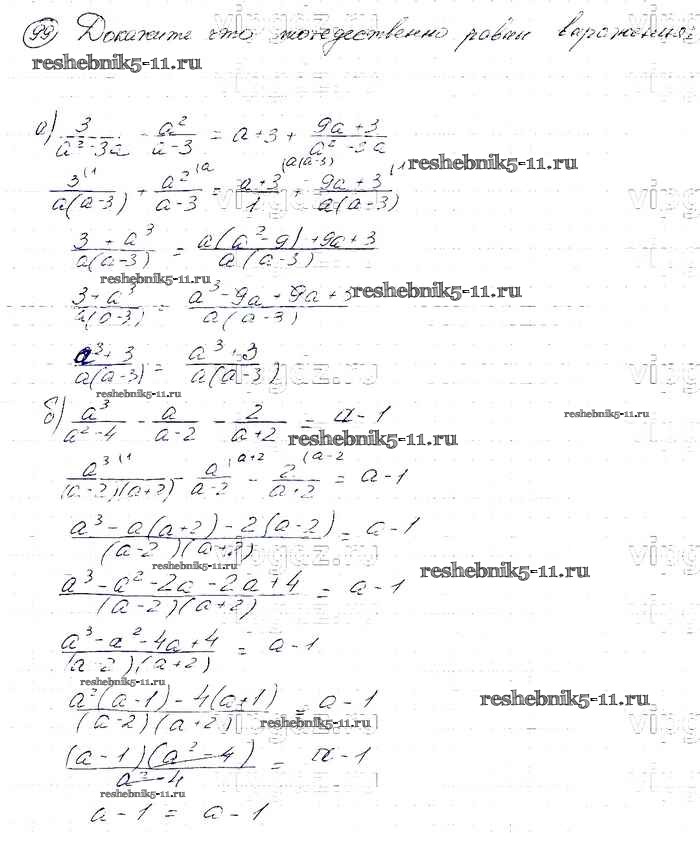 99) Докажите что тождественно равны выражения:
reshebnik5-11.ru
а) 3/(a²-3a) - a²/(a-3) = a+3 + (9a+3)/(a²-3a)
reshebnik5-11.ru
3^(1/(a(a-3)) + a²^(a/(a-3) = (a+3)^(a(a-3)/1 + (9a+3)^(1/(a(a-3))
(3+a³)/(a(a-3)) = (a(a²-9)+9a+3)/(a(a-3))
reshebnik5-11.ru
(3+a³)/(a(a-3)) = (a³-9a+9a+3)/(a(a-3))
reshebnik5-11.ru
(a³+3)/(a(a-3)) = (a³+3)/(a(a-3))
reshebnik5-11.ru
б) a³/(a²-4) - a/(a-2) - 2/(a+2) = a-1
reshebnik5-11.ru
reshebnik5-11.ru
a³^(1/((a-2)(a+2)) - a^(a+2/(a-2) - 2^(a-2/(a+2) = a-1
(a³-a(a+2)-2(a-2))/((a-2)(a+2)) = a-1
reshebnik5-11.ru
(a³-a²-2a-2a+4)/((a-2)(a+2)) = a-1
reshebnik5-11.ru
(a³-a²-4a+4)/((a-2)(a+2)) = a-1
reshebnik5-11.ru
(a²(a-1)-4(a+1))/((a-2)(a+2)) = a-1
reshebnik5-11.ru
reshebnik5-11.ru
((a-1)(a²-4))/(a²-4) = a-1
reshebnik5-11.ru
a-1 = a-1